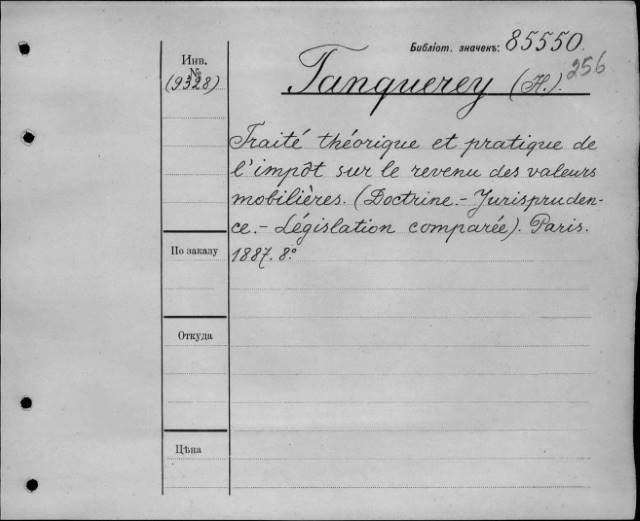 Библіот. значекъ: 85550.
256
Инв.
№
(9328)
Tanquerey (H.).
Traité théorique et pratique de
l'impôt sur le revenu des valeurs
mobilières. (Doctrine.- Jurispruden-
ce.- Législation comparée). Paris.
1887. 8º
По заказу
Откуда
Цѣна